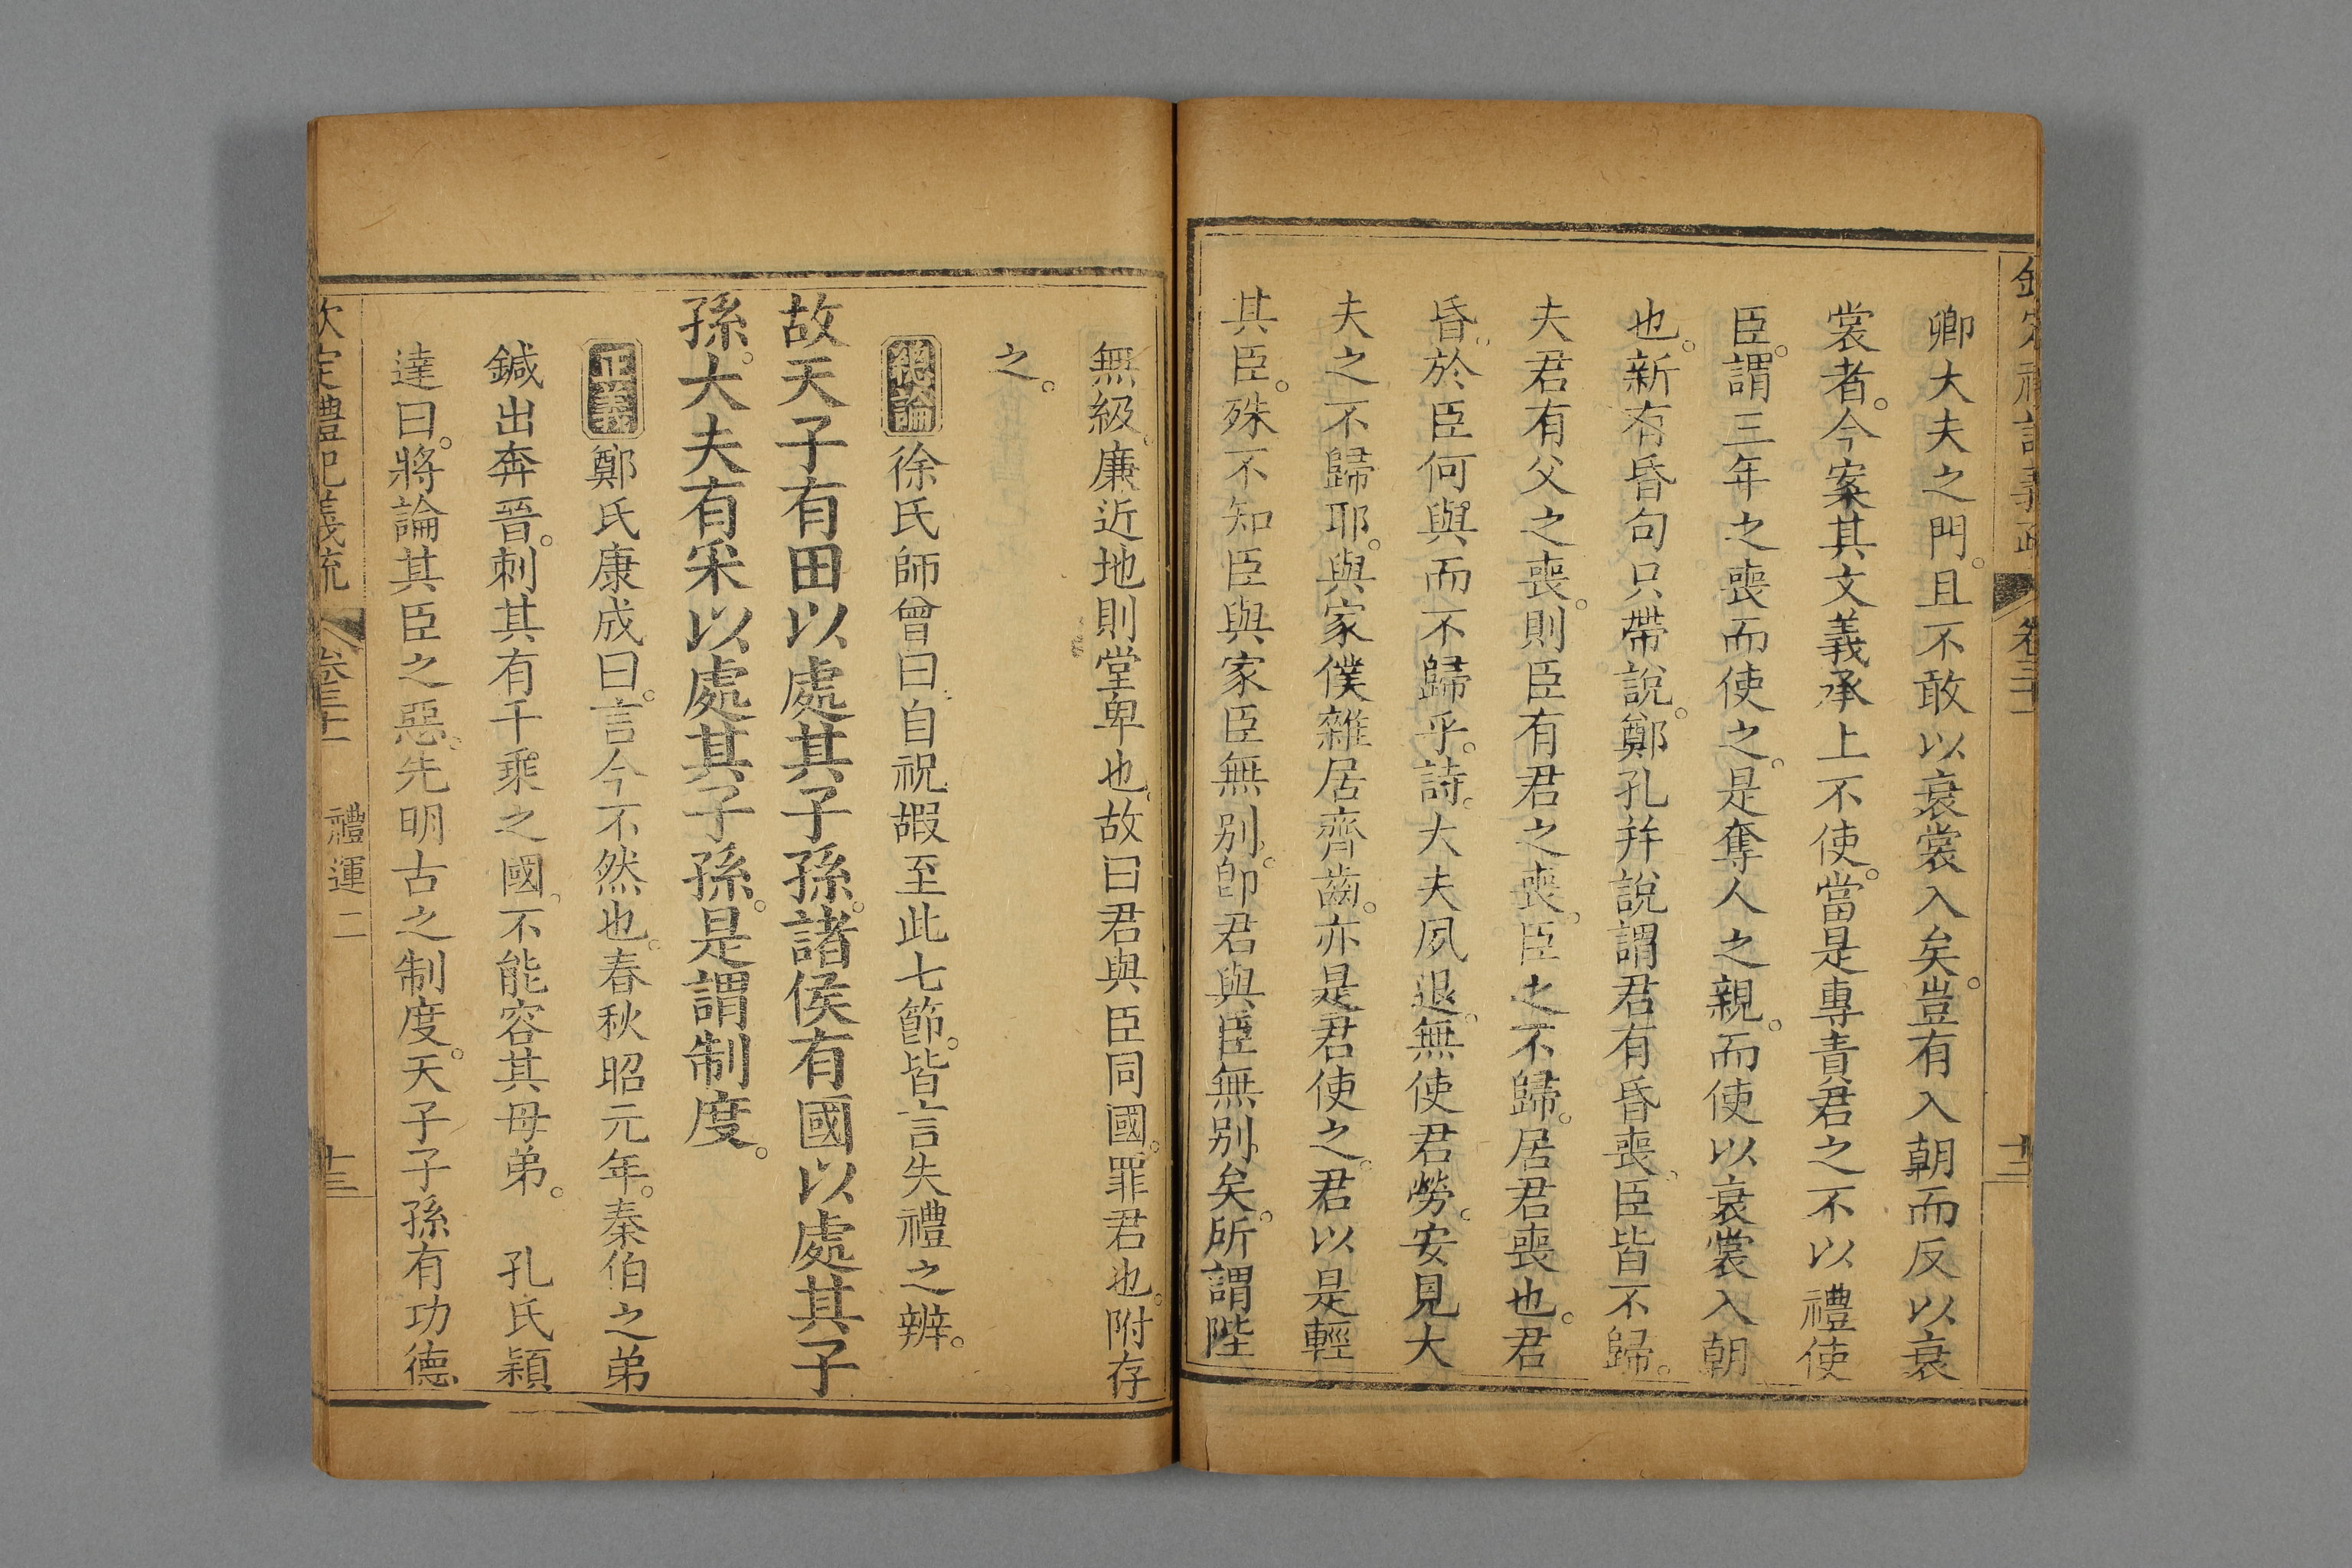 欽定禮記義疏 卷三十一 十二
卿大夫之門。且不敢以衰裳入矣。豈有入朝而反以衰
裳者。今案其文義承上不使。當是專責君之不以禮使
臣。謂三年之喪而使之。是奪人之親。而使以衰裳入朝
也。新有昏句只帶說。鄭孔并說謂君有昏喪、臣皆不歸。
夫君有父之喪。則臣有君之喪。臣之不歸。居君喪也。君
昏、於臣何與而不歸乎。詩。大夫夙退。無使君勞。安見大
夫之不歸耶。與家僕雜居齊齒。亦是君使之。君以是輕
其臣。殊不知臣與家臣無別。卽君與臣無別矣。所謂陛
無級、廉近地則堂卑也、故曰君與臣同國。罪君也。附存
之。
總論 徐氏師曾曰、自祝嘏至此七節。皆言失禮之辨。
故天子有田以處其子孫。諸侯有國以處其子
孫。大夫有采以處其子孫。是謂制度。
正義 鄭氏康成曰。言今不然也。春秋昭元年。秦伯之弟
鍼出奔晉。刺其有千乘之國、不能容其母弟。 孔氏穎
達曰。將論其臣之惡。先明古之制度。天子子孫有功德
欽定禮記義疏 卷三十一 禮運二 十三